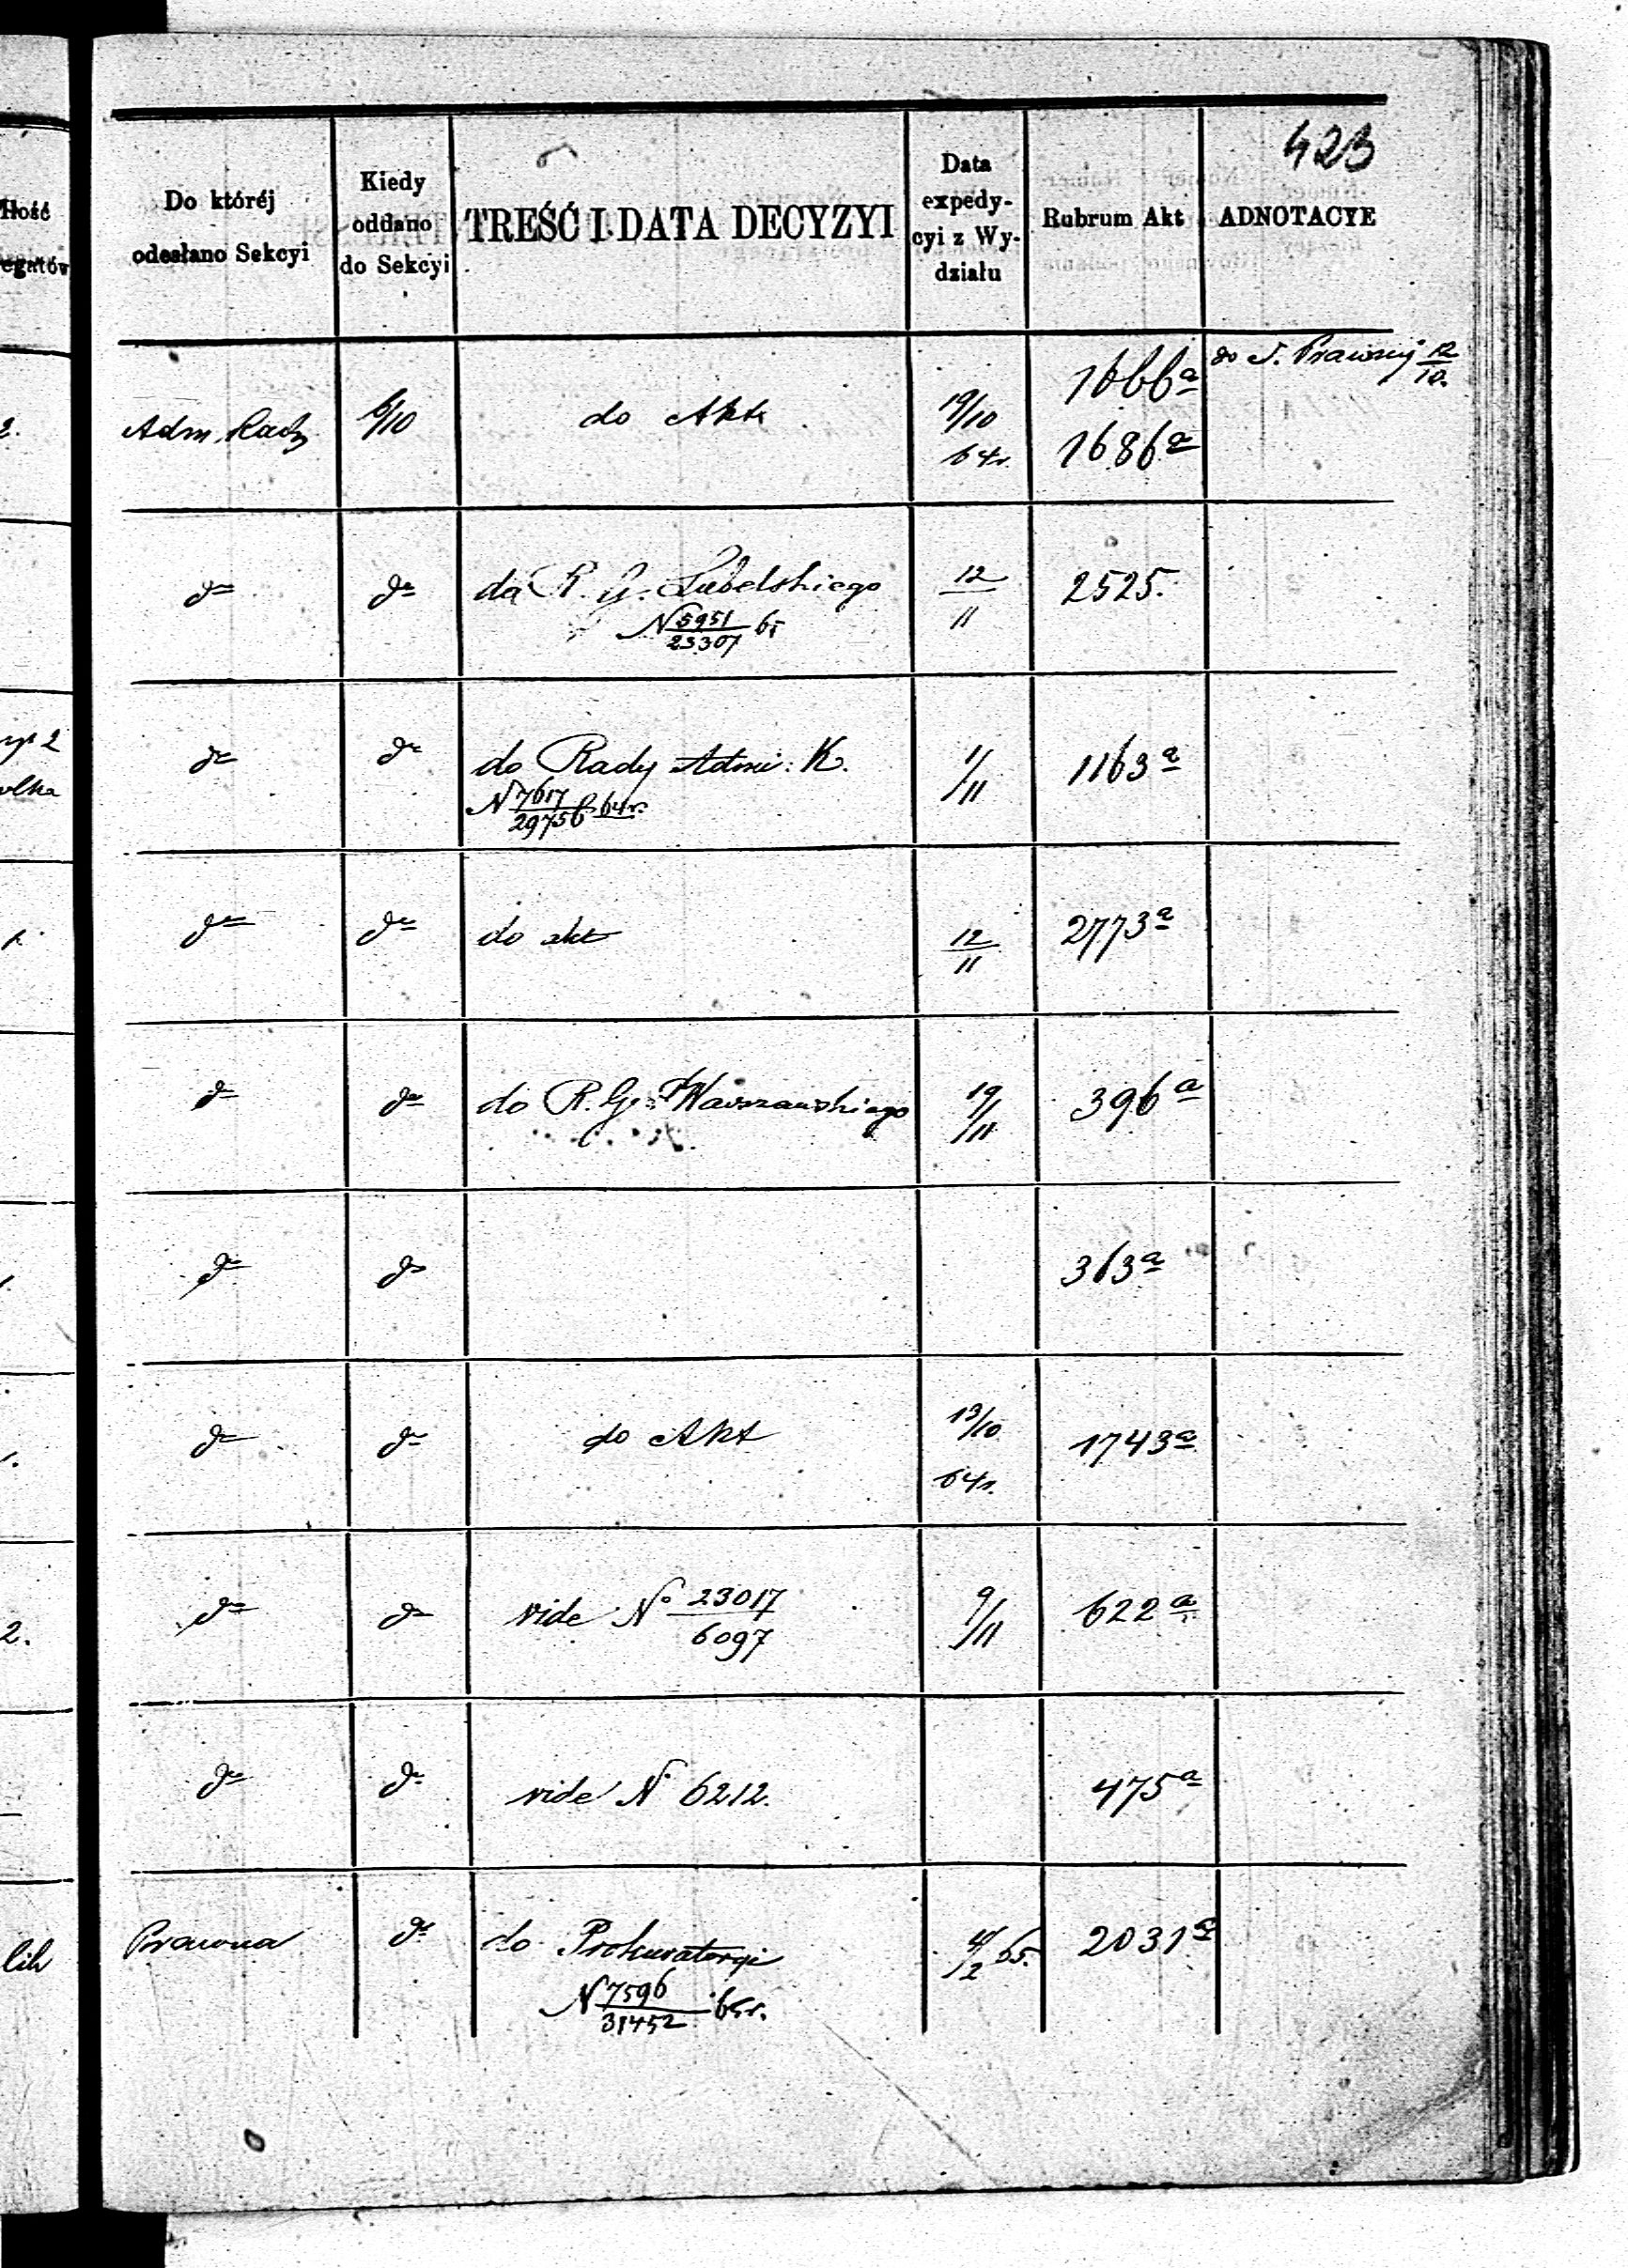 423
Do któréj
odesłano Sekcyi
Kiedy
oddano
do Sekcyi
TREŚĆ I DATA DECYZYI
Data
expedy-
cyi z Wy-
działu
Rubrum Akt
ADNOTACYE
Adm. Rady 6/10 do Akt 19/10 64r. 1666a 1686a do S. Prawnej 12/10.
do do do R. G. Lubelskiego 12/11 2525.
N 5951/23307
do do do Rady Admi: K. 1/11 1163a
N 7617/29756 64r.
do do do akt 12/11 2773a
do do do R. G. Warszawskiego 19/11 396a
do do 363a
do do do Akt 13/10 64r. 1743a
do do vide No 23017/6097 9/11 622a
do do vide N 6212. 475a
Prawna do do Prokuratoryi 4/2 65. 2031a
N 7596/31452 65r.